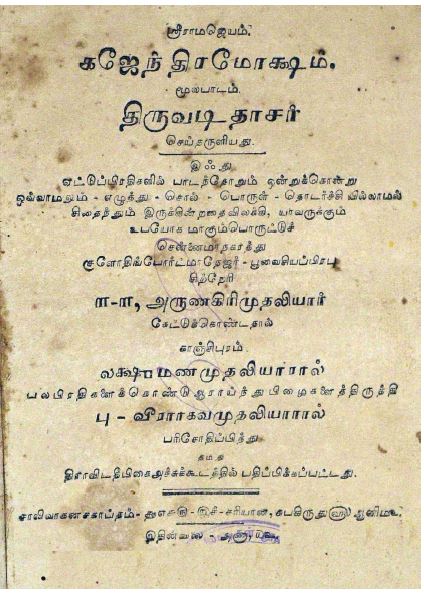 ஸ்ரீராமஜெயம்.
கஜேந்திரமோக்ஷம்.
மூலபாடம்.
திருவடிதாசர்
செய்தருளியது.
இஃது
ஏட்டுப்பிரதிகளில் பாடந்தோறும் ஒன்றுக்கொன்று
ஒவ்வாமலும் - எழுத்து - சொல் - பொருள் - தொடர்ச்சி யில்லாமல்
சிதைந்தும் இருக்கின்றதைவிலக்கி, யாவருக்கும்
உபயோக மாகும்பொருட்டுச்
சென்னைமாநகரத்து
குளோதிங்போர்ட்மாநேஜர் - பூவைசியப்பிரபு
சித்தேரி
ள-ள, அருணகிரிமுதலியார்
கேட்டுக்கொண்டதால்
காஞ்சிபுரம்
லக்ஷுமணமுதலியாரால்
பலபிரதிகளைக்கொண்டு ஆராய்ந்து பிழைகளைத்திருத்தி
பு - வீராரகவமுதலியாரால்
பரிசோதிப்பித்து
தமது
திராவிடதீபிகைஅச்சுக்கூடத்தில் பதிப்பிக்கப்பட்டது.
சாலிவாகனசகாப்தம் சரியான,
இதின்விலை - அணா